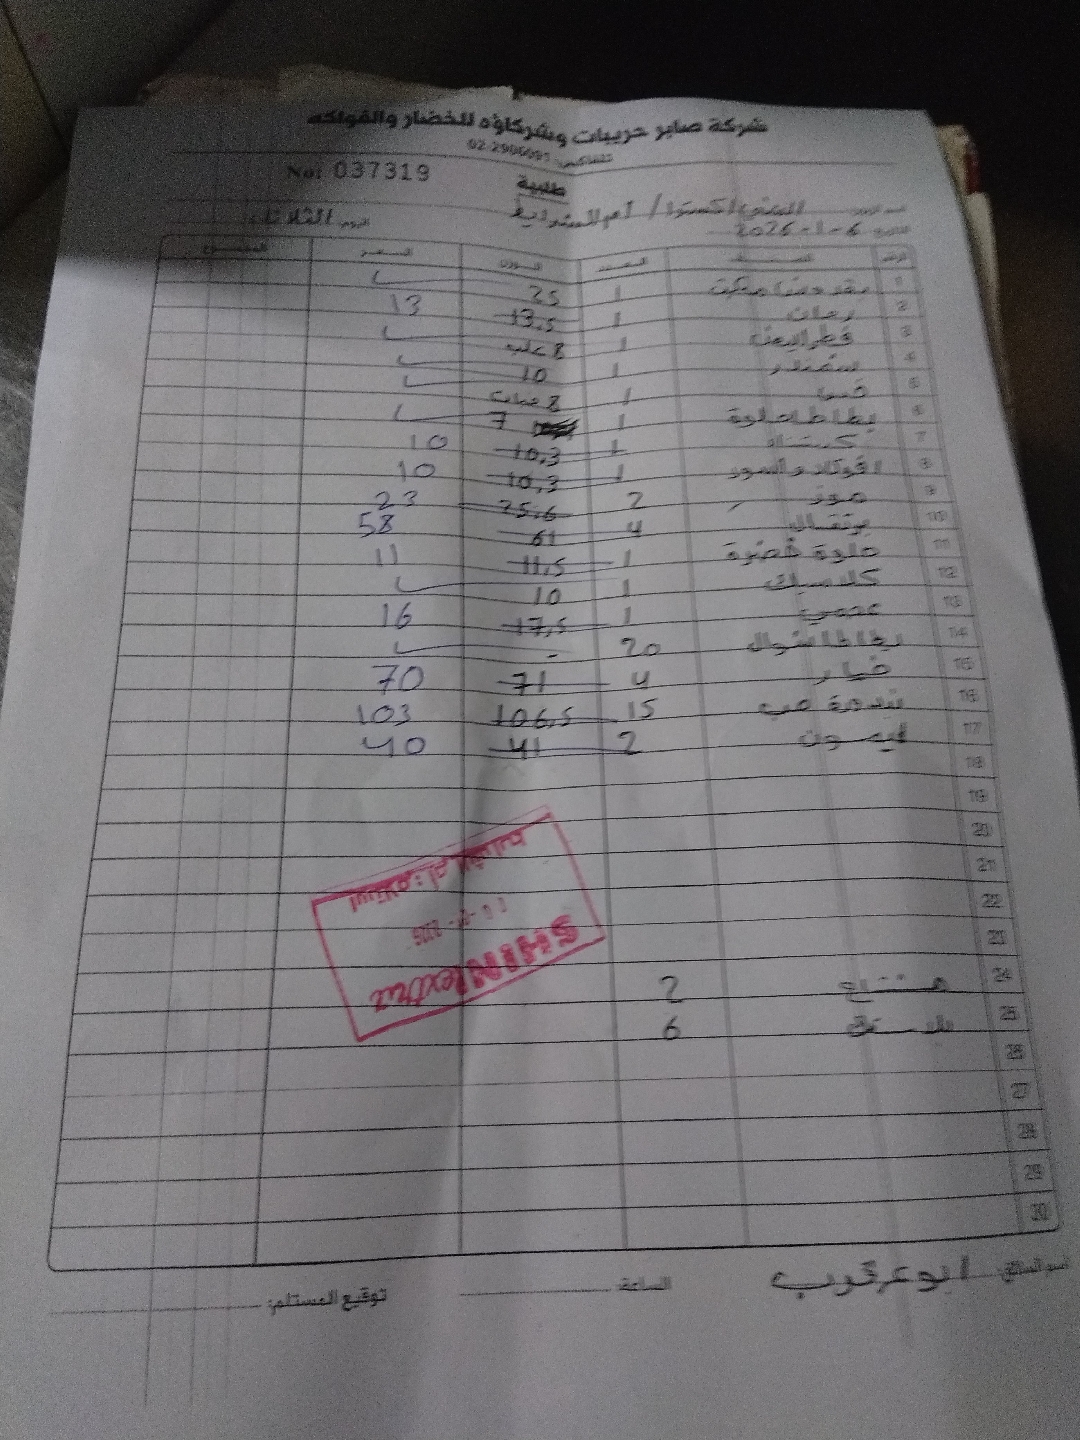 شركة صابر حريبات وشركاؤه للخضار والفواكه
تلفاكس: 02-2906091
No: 037319
طلبية
اكسترا / ام الشرايط
اليوم الثلاثاء
2026-1-6
الرقم الصنف العدد الوزن السعر
1 1 25 ✓
2 رمان 1 13.5 13
3 فطر 1 8 علب ✓
4 شمندر 1 10 ✓
5 خس 1 8 حبات ✓
6 بطاطا حلوة 1 7 ✓
7 كستناء 1 10,3 10
8 افوكادو اسود 1 10,3 10
9 موز 2 25.6 23
10 برتقال 4 61 58
11 حلوة خضرة 1 11.5 11
12 كلاسيك 1 10 ✓
13 عجمي 1 17,5 16
14 بطاطا شوال 20 - ✓
15 خيار 4 71 70
16 بندورة حب 15 106,5 103
17 ليمون 2 41 40
18
19
20
21
22
23
24 مشتاح 2
25 بلاستك 6
26
27
28
29
30
SHINI extra
استلام: ام الشرايط
اسم السائق: ابو عرقوب
الساعة:
توقيع المستلم: